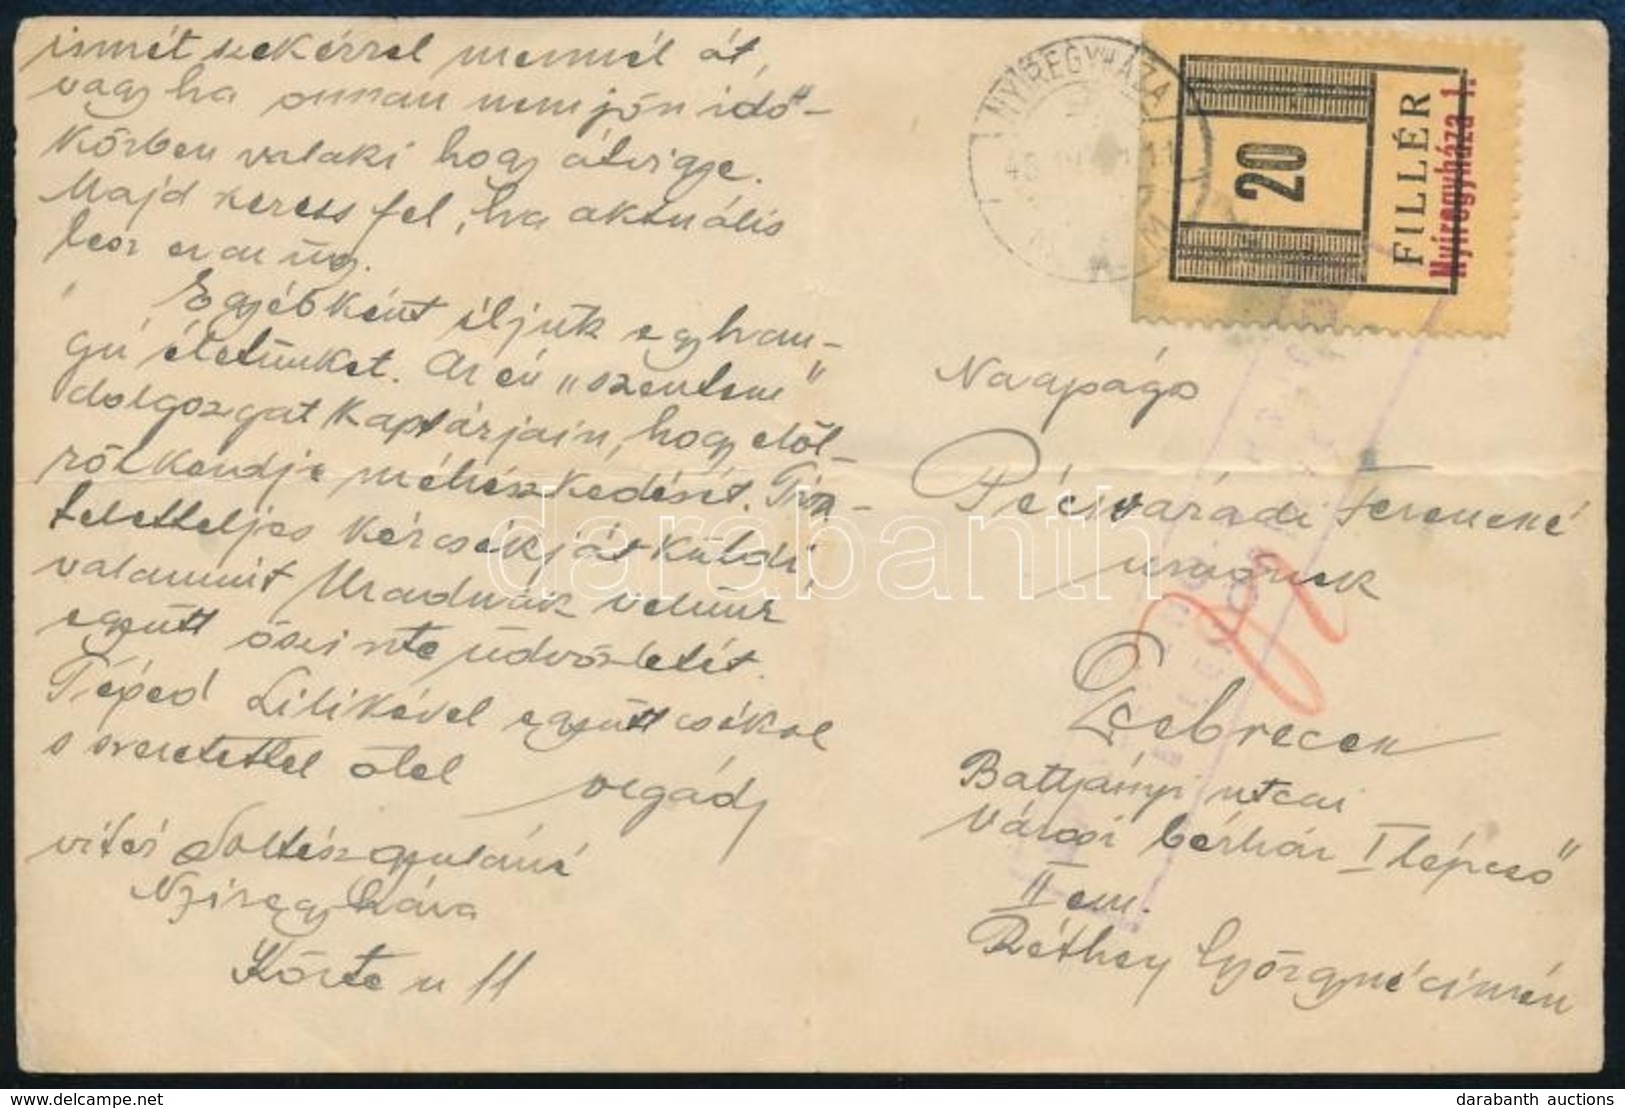 ismét szekérrel mennél át,
vagy ha onnan nem jön idő-
közben valaki hogy átvigye.
Majd keress fel, ha aktuális
lesz ez az ügy.
Egyébként éljük egyhan-
gú életünket. Az én "szentem"
dolgozgat kaptárjain, hogy elől-
ről kezdje méhészkedését. Tisz-
teletteljes kézcsókját küldi,
valamint Uradnak velünk
együtt őszinte üdvözletét.
Téged Lilikével együtt csókol
s szeretettel ölel
vitéz Soltész Gyuláné
Nyiregyháza
Körte u 11
NYIREGYHÁZA
20
FILLÉR
Nyíregyháza 1.
Nagyságos
Pécsváradi Ferencné
urnőnek
Debrecen
Battyányi utcai
Városi bérház I lépcső
II em.
Réthey Györgyné címén
darabanth
darabanth auctions